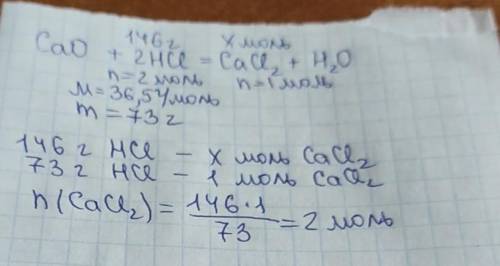 146 г x моль
CaO + 2HCl = CaCl₂ + H₂O
n=2 моль n=1 моль
M=36,5 г/моль
m = 73 г
146 г HCl – x моль CaCl₂
73 г HCl – 1 моль CaCl₂
n(CaCl₂) = 146·1/73 = 2 моль